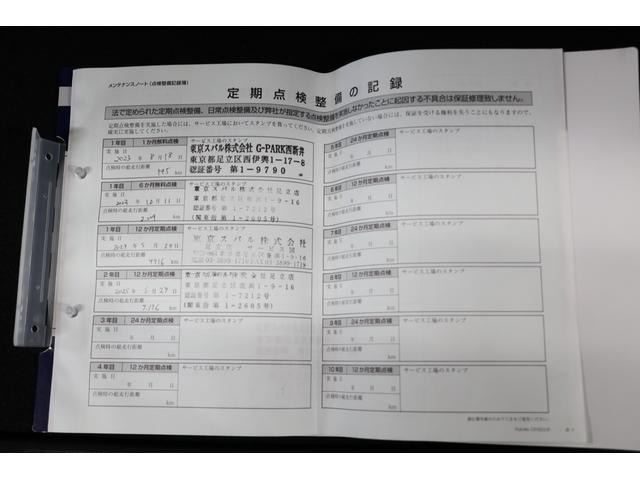 メンテナンスノート(点検整備記録簿)
定期点検整備の記録
法で定められた定期点検整備、日常点検整備及び弊社が指定する点検整備を実施しなかったことに起因する不具合は保証修理致しません。
定期点検整備を実施した場合には、サービス工場においてスタンプを貰ってください。定期点検整備が実施していない場合は、保証を受ける権利を失うことにもなりますので、
確実に実施してください。
1年目 1か月無料点検
サービス工場のスタンプ
実施日
2023年 8月18日
点検時の総走行距離
195 km
東京スバル株式会社 G-PARK西新井
東京都足立区西伊興1-17-8
認証番号 第1-9790
1年目 6か月無料点検
サービス工場のスタンプ
実施日
12月11日
点検時の総走行距離
km
東京スバル株式会社足立店
東京都足立区
認証番号 第1-7212号
(関東指第1-2605号)
1年目 12か月定期点検
サービス工場のスタンプ
実施日
点検時の総走行距離
km
東京スバル株式会社
足立店
2年目 12か月定期点検
サービス工場のスタンプ
実施日
2025年 5月27日
点検時の総走行距離
km
東京スバル株式会社足立店
認証番号 第1-7212号
(関東指第1-2605号)
3年目 24か月定期点検
サービス工場のスタンプ
実施日
年 月 日
点検時の総走行距離
km
4年目 12か月定期点検
サービス工場のスタンプ
実施日
年 月 日
点検時の総走行距離
km
5年目 24か月定期点検
サービス工場のスタンプ
実施日
年 月 日
点検時の総走行距離
km
6年目 12か月定期点検
サービス工場のスタンプ
実施日
年 月 日
点検時の総走行距離
km
7年目 24か月定期点検
サービス工場のスタンプ
実施日
年 月 日
点検時の総走行距離
km
8年目 12か月定期点検
サービス工場のスタンプ
実施日
年 月 日
点検時の総走行距離
km
9年目 24か月定期点検
サービス工場のスタンプ
実施日
年 月 日
点検時の総走行距離
km
10年目 12か月定期点検
サービス工場のスタンプ
実施日
年 月 日
点検時の総走行距離
km